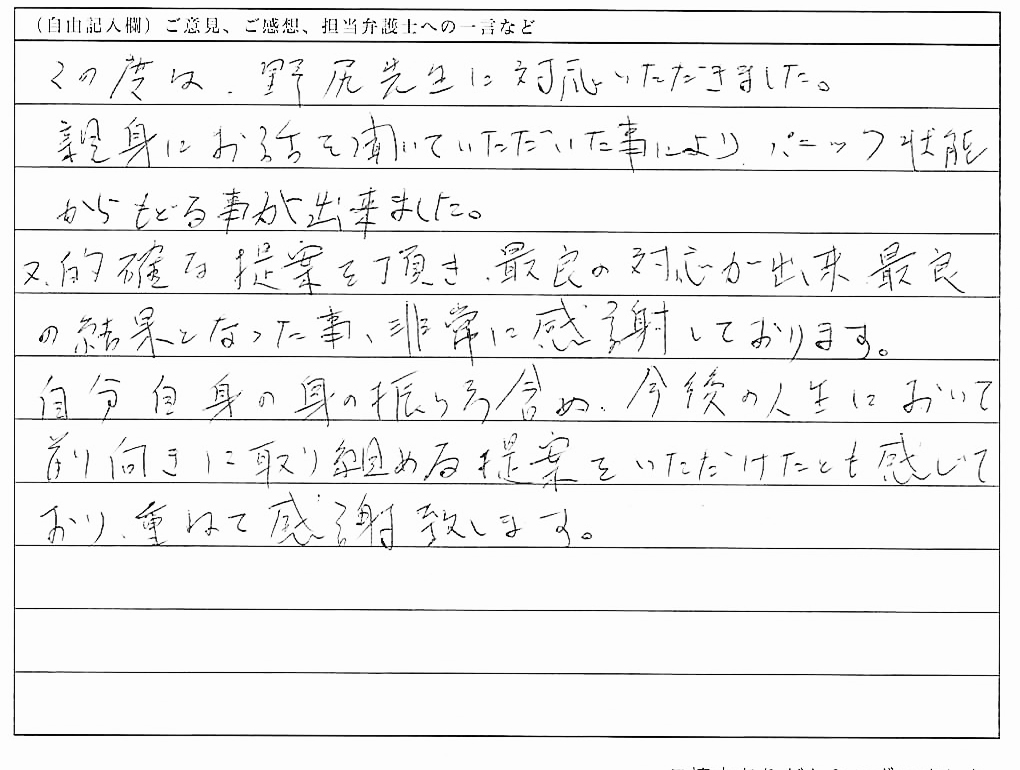 （自由記入欄）ご意見、ご感想、担当弁護士への一言など
この度は、野尻先生に対応いただきました。
親身にお話を聞いていただいた事により、パニック状態
からもどる事が出来ました。
又、的確な提案を頂き、最良の対応が出来、最良
の結果となった事、非常に感謝しております。
自分自身の身の振り方含め、今後の人生において
前り向きに取り組める提案をいただけたとも感じて
おり、重ねて感謝致します。